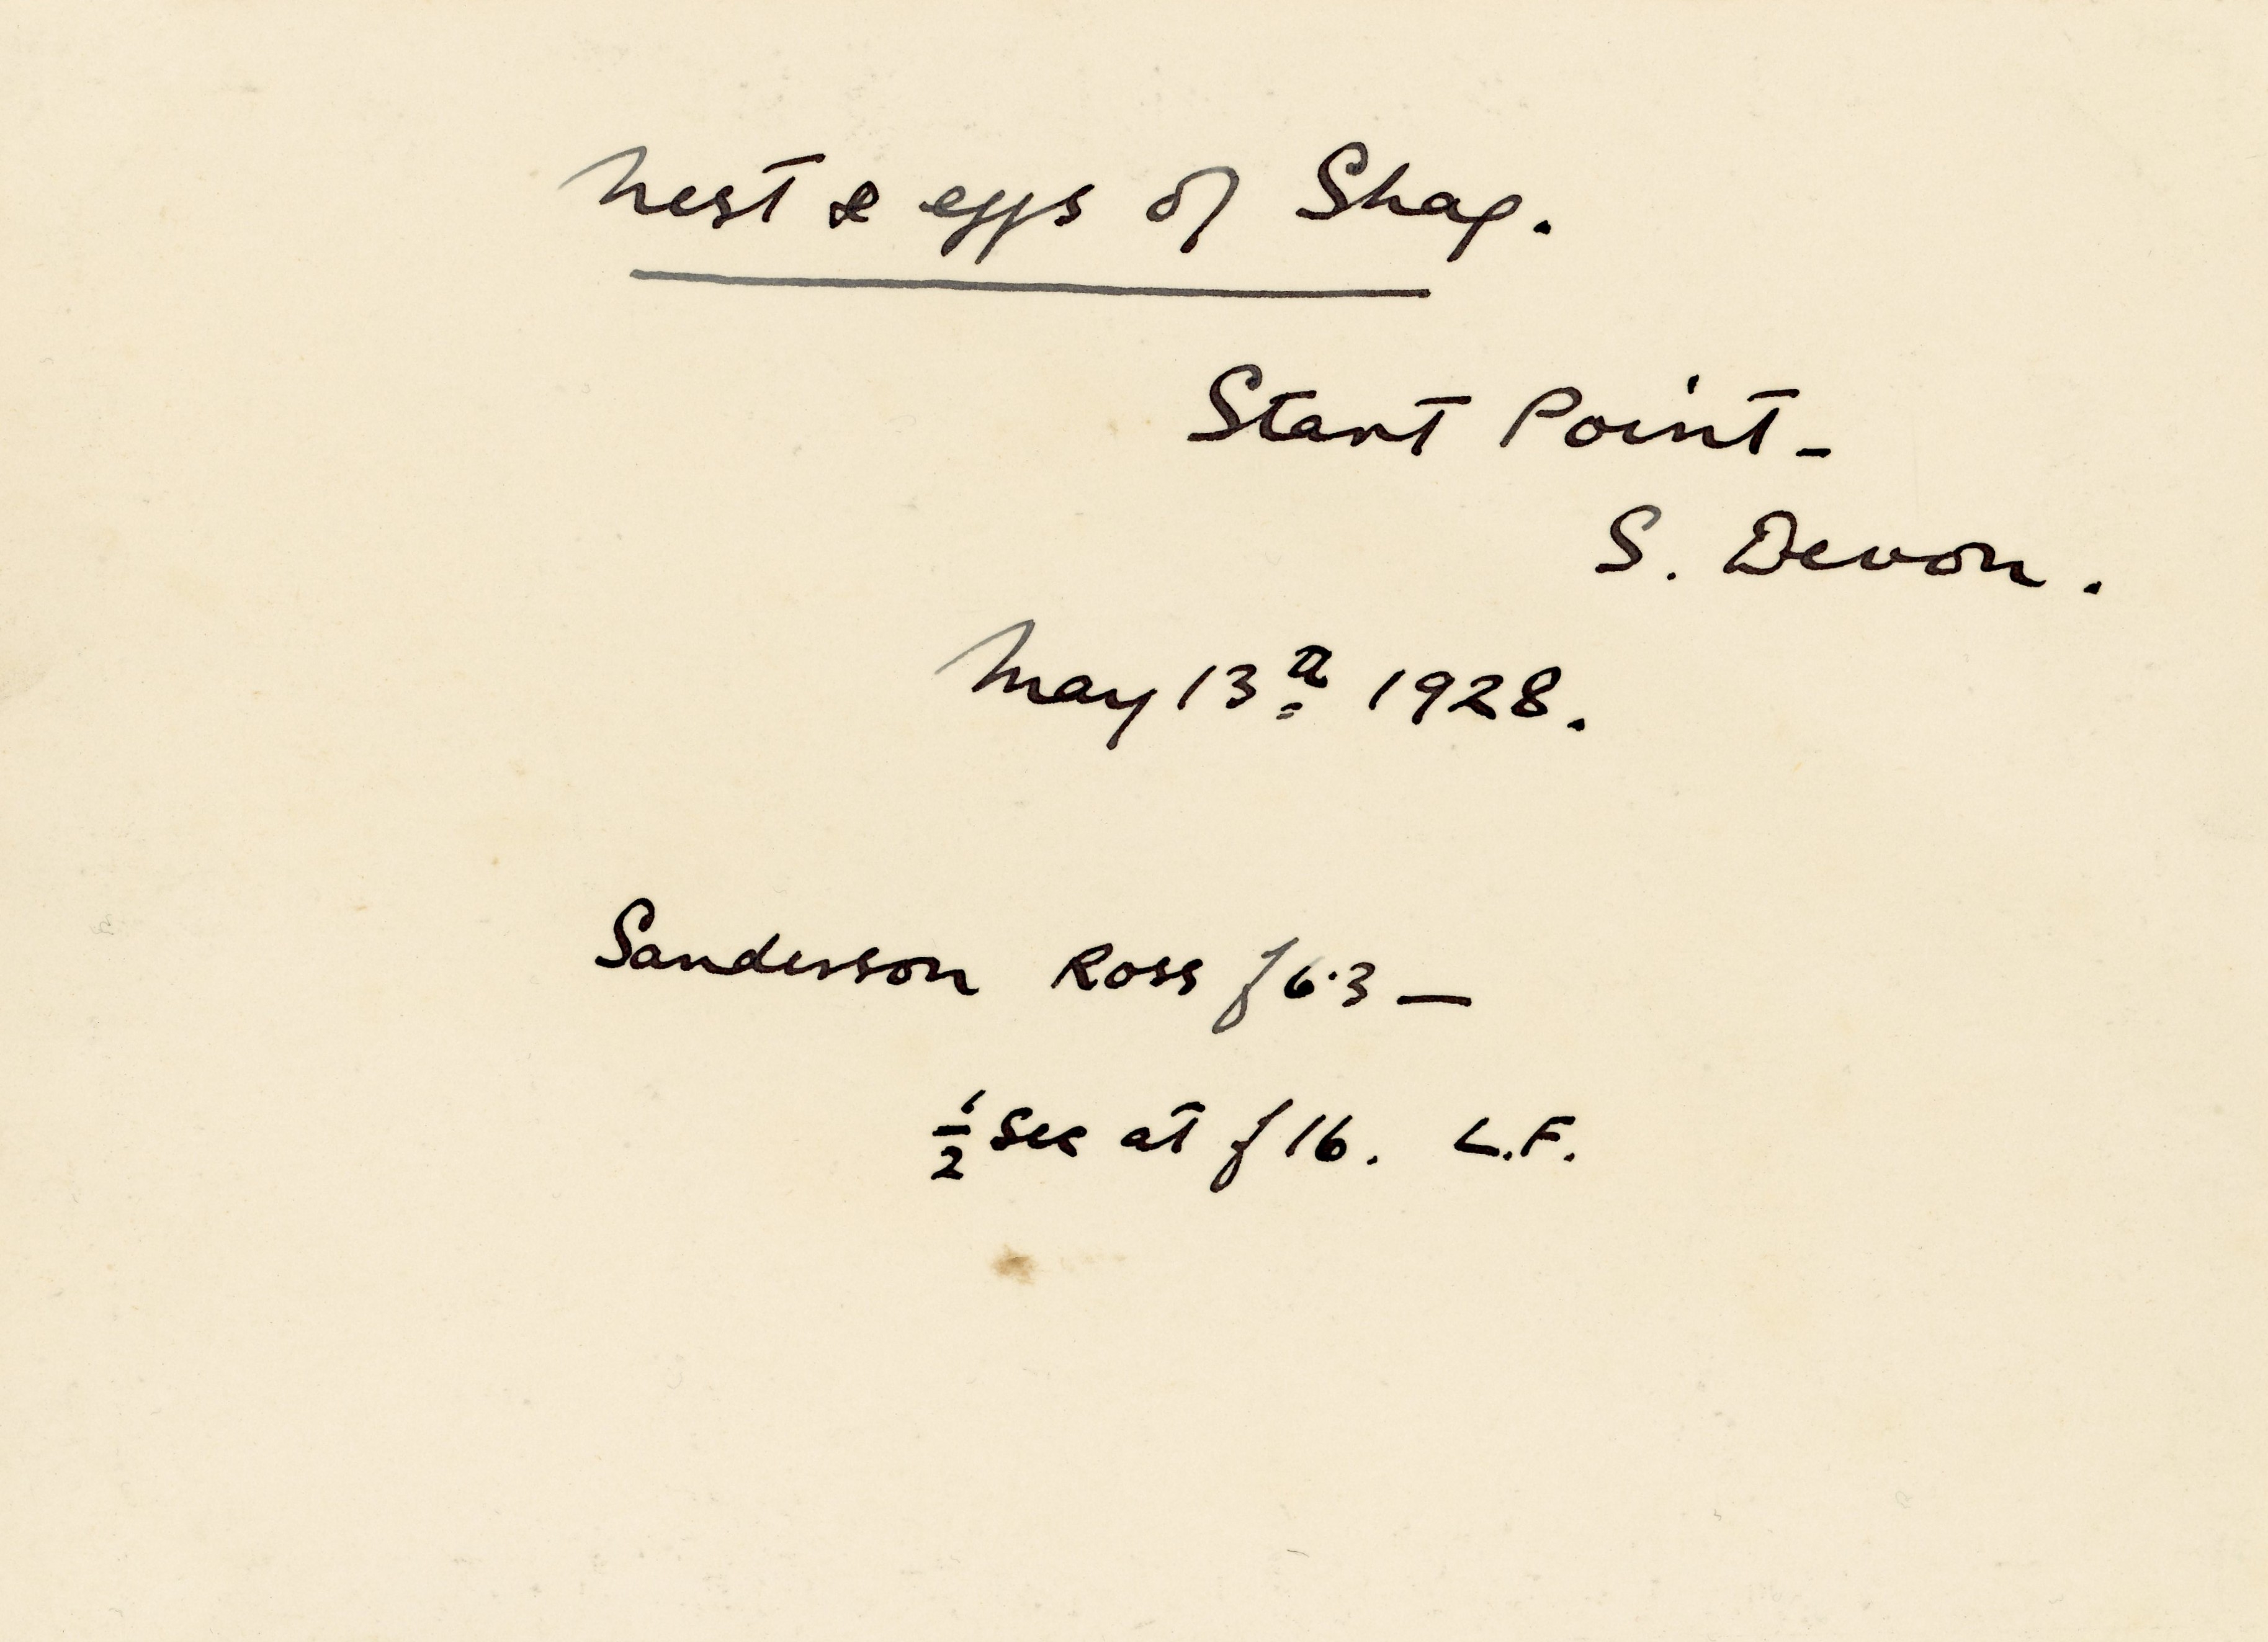 Nest & eggs of Shag.
Start Point -
S. Devon.
May 13th 1928.
Sanderson Ross f6.3 —
½ sec at f16. L.F.